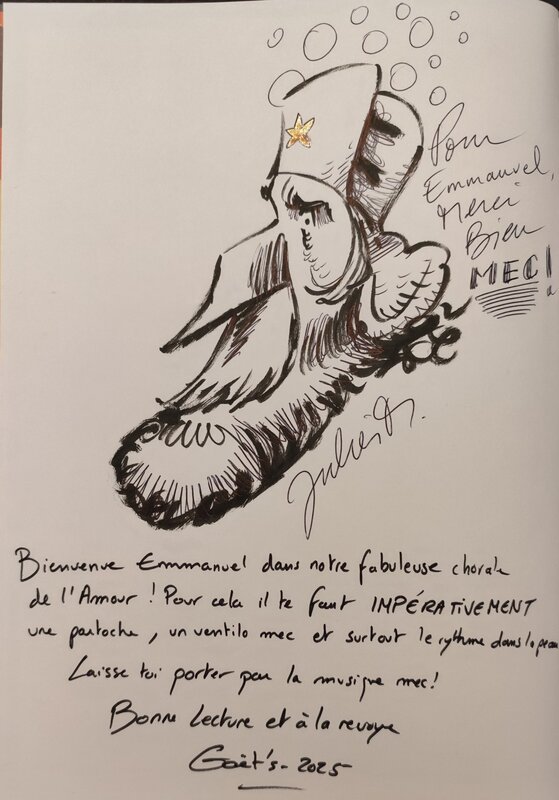 Pour
Emmanuel,
Merci
Bien
MEC!
Julien S.
Bienvenue Emmanuel dans notre fabuleuse chorale
de l'Amour ! Pour cela il te faut IMPÉRATIVEMENT
une partoche, un ventilo mec et surtout le rythme dans la peau
Laisse toi porter par la musique mec!
Bonne Lecture et à la revoyure
Gaët's - 2025